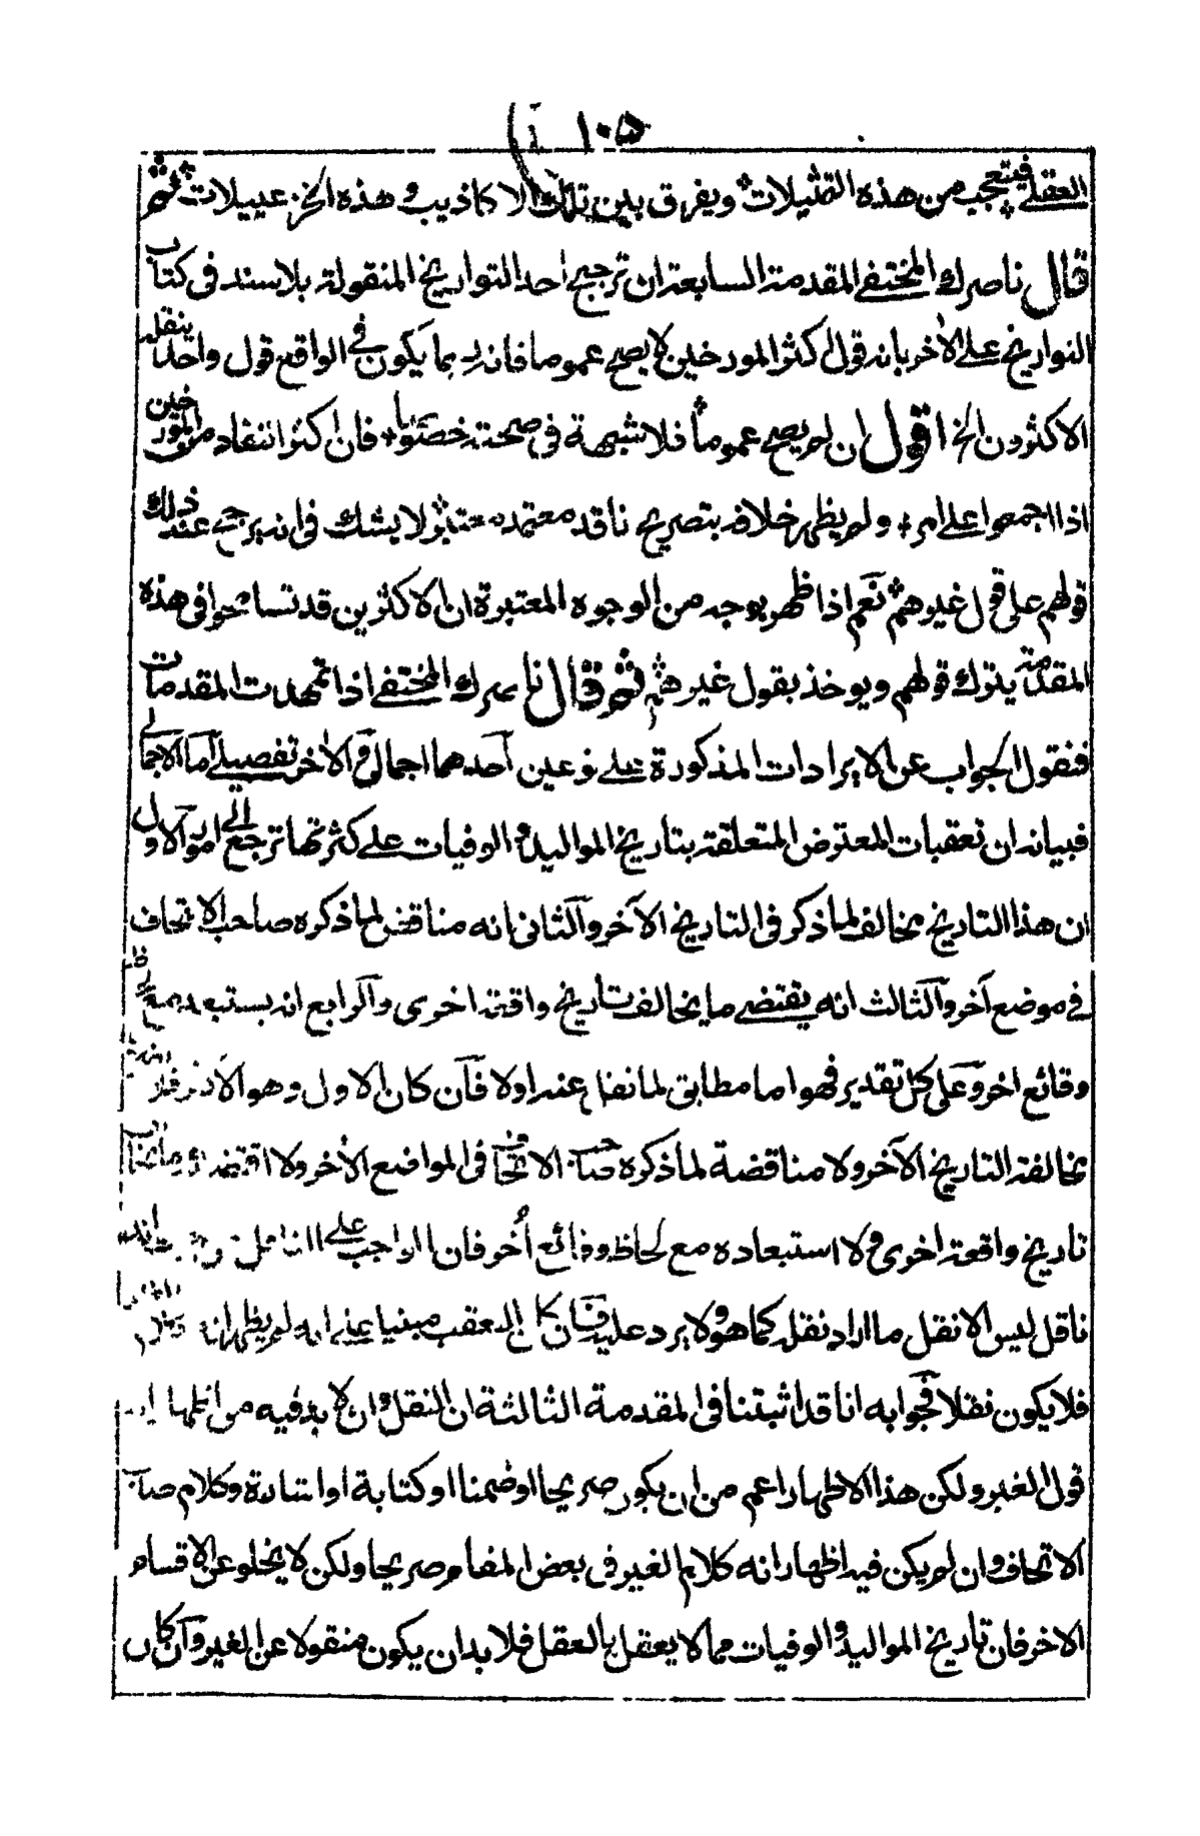 ١٠٥
العقلي فيتعجب من هذه التمثيلات ويفرق بين تلك الاكاذيب وهذه الخزعبيلات ثم
قال ناصرك المختفي المقدمة السابعة ان ترجيح احد التواريخ المنقولة بلا سند في كتاب
التواريخ على الآخر بانه قول اكثر المورخين لا يصح عموما فانه ربما يكون في الواقع قول واحد ينقله
الاكثرون الخ اقول ان لم يصح عموماً فلا شبهة في صحته خصوصا فان اكثر انتقاد من المورخين
اذا اجمعوا على امر ولم يظهر خلافه بتصريح ناقد معتمد معتبر لا يشك في انه يرجح عند ذلك
قولهم على قول غيرهم نعم اذا ظهر بوجه من الوجوه المعتبرة ان الاكثرين قد تسامحوا في هذه
المقدمة يترك قولهم ويوخذ بقول غيرهم ثم قال ناصرك المختفي اذا تمهدت المقدمات
فنقول الجواب عن الايرادات المذكورة على نوعين آحدهما اجمالي والآخر تفصيلي اما الاجمالي
فبيانه ان تعقبات المعترض المتعلقة بتاريخ المواليد والوفيات على كثرتها ترجع الى امور الاول
ان هذا التاريخ مخالف لما ذكر في التاريخ الآخر والثاني انه مناقض لما ذكره صاحب الاتحاف
في موضع آخر والثالث انه يقتضي ما يخالف تاريخ واقعة اخرى والرابع انه يستبعد مع
وقائع اخر وعلى كل تقدير فهو اما مطابق لما نقل عنه اولا فان كان الاول وهو
مخالفة التاريخ الآخر ولا مناقضة لما ذكره صاحب الاتحاف في المواضع الأخر ولا
تاريخ واقعة اخرى ولا استبعاده مع لحاظ وقائع أخر فان الواجب على الناقل
ناقل ليس الا نقل ما اراد نقله كما هو ولا يرد عليه فان كان التعقب مبنيا على انه لم يظهر انه
فلا يكون نقلا فجوابه انا قد اثبتنا في المقدمة الثالثة ان النقل وان لا بد فيه من اظهار
قول الغير ولكن هذا الاظهار اعم من ان يكون صريحا او ضمنا او كتابة او اشارة وكلام صاحب
الاتحاف وان لم يكن فيه اظهار انه كلام الغير في بعض المقام صريحا ولكن لا يخلو عن الاقسام
الاخر فان تاريخ المواليد والوفيات مما لا يعقل بالعقل فلا بد ان يكون منقولا عن الغير وان كان